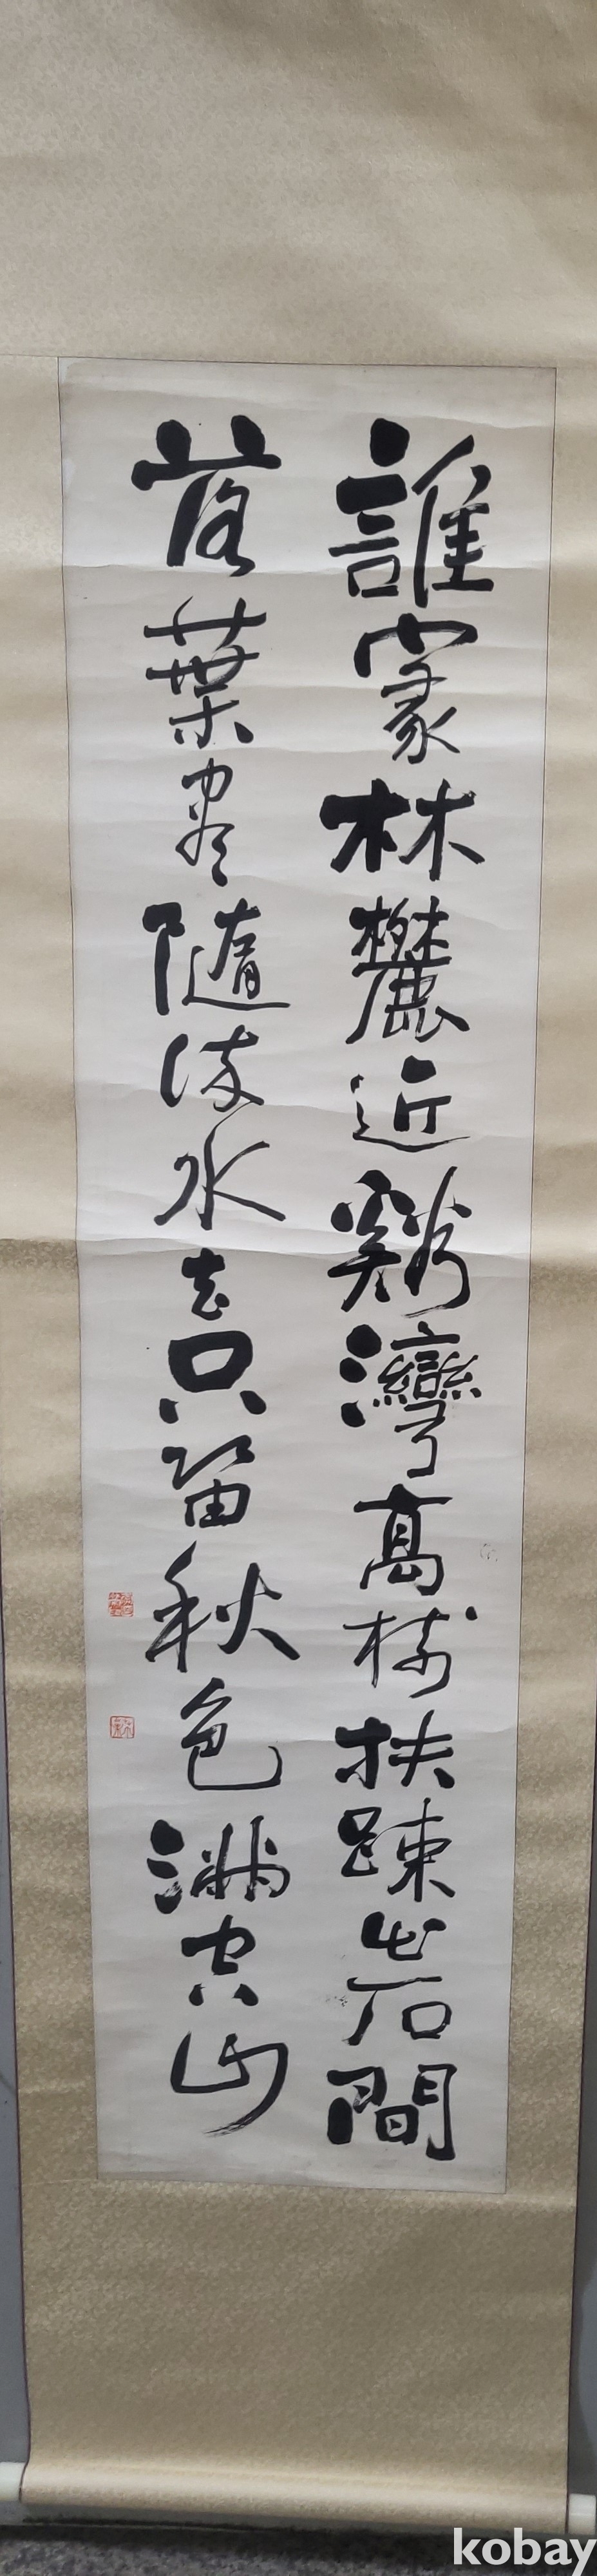 誰家林麓近谿灣高樹扶踈岩石間
落葉尽隨流水去只留秋色满空山
kobay